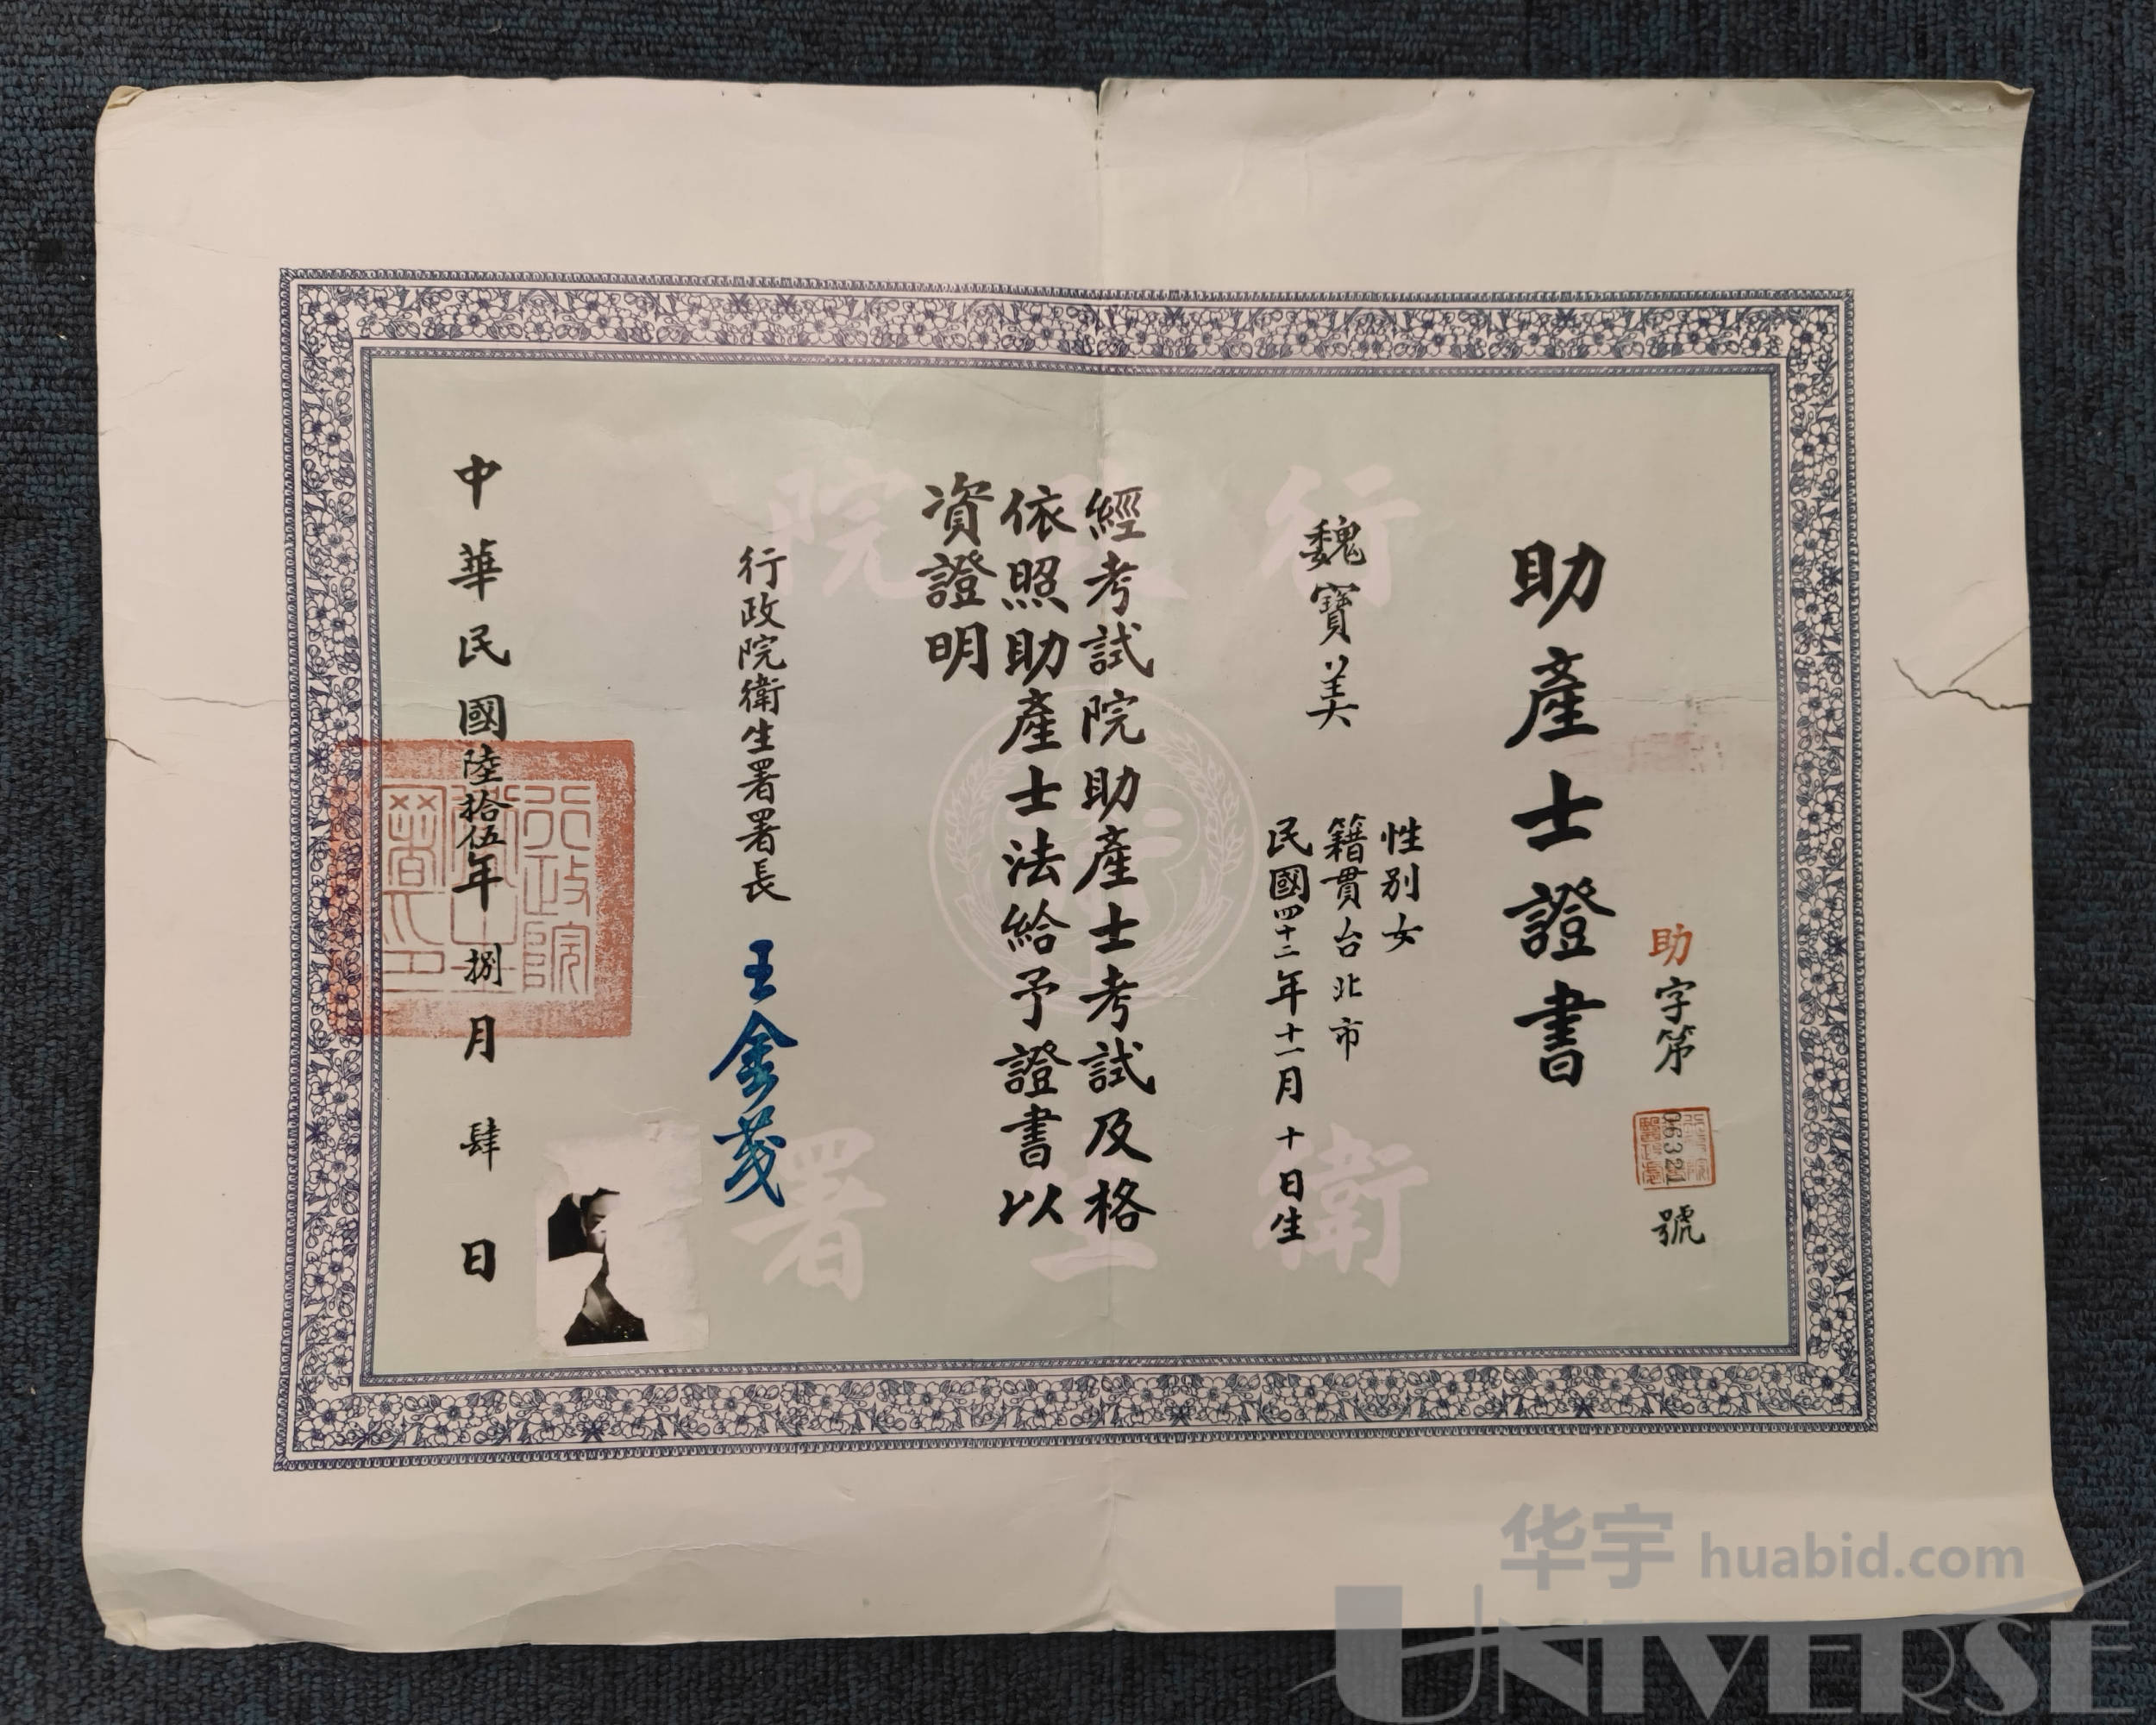 助字第
006321
號
助產士證書
魏寶美
性別女
籍貫台北市
民國四十二年十一月十日生
經考試院助產士考試及格
依照助產士法給予證書以
資證明
行政院衛生署署長 王金茂
中華民國陸拾伍年捌月肆日
行政院
衛生署
行政院
衛生
署印
华宇 huabid.com
UNIVERSE